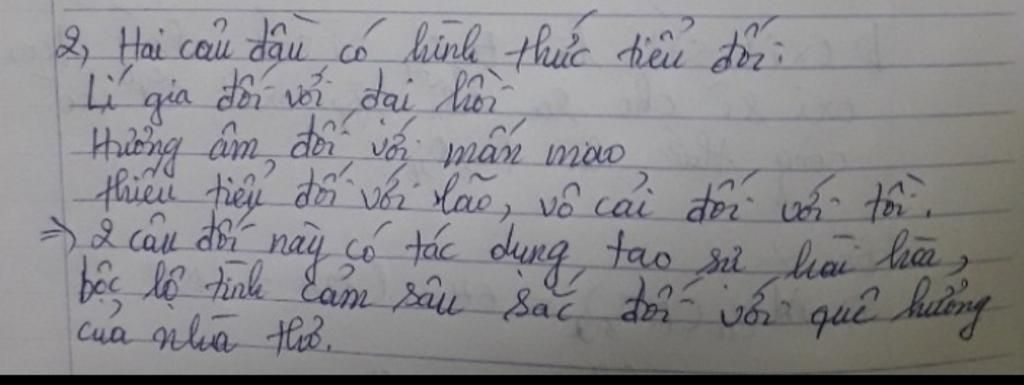 2, Hai câu đầu có hình thức tiểu đối:
Lí gia đối với đại hồi
Hương âm đối với mấn mao
thiếu tiểu đối với lão, vô cải đối với tồi.
=> 2 câu đối này có tác dụng tạo sự hài hòa,
bộc lộ tình cảm sâu sắc đối với quê hương
của nhà thơ.